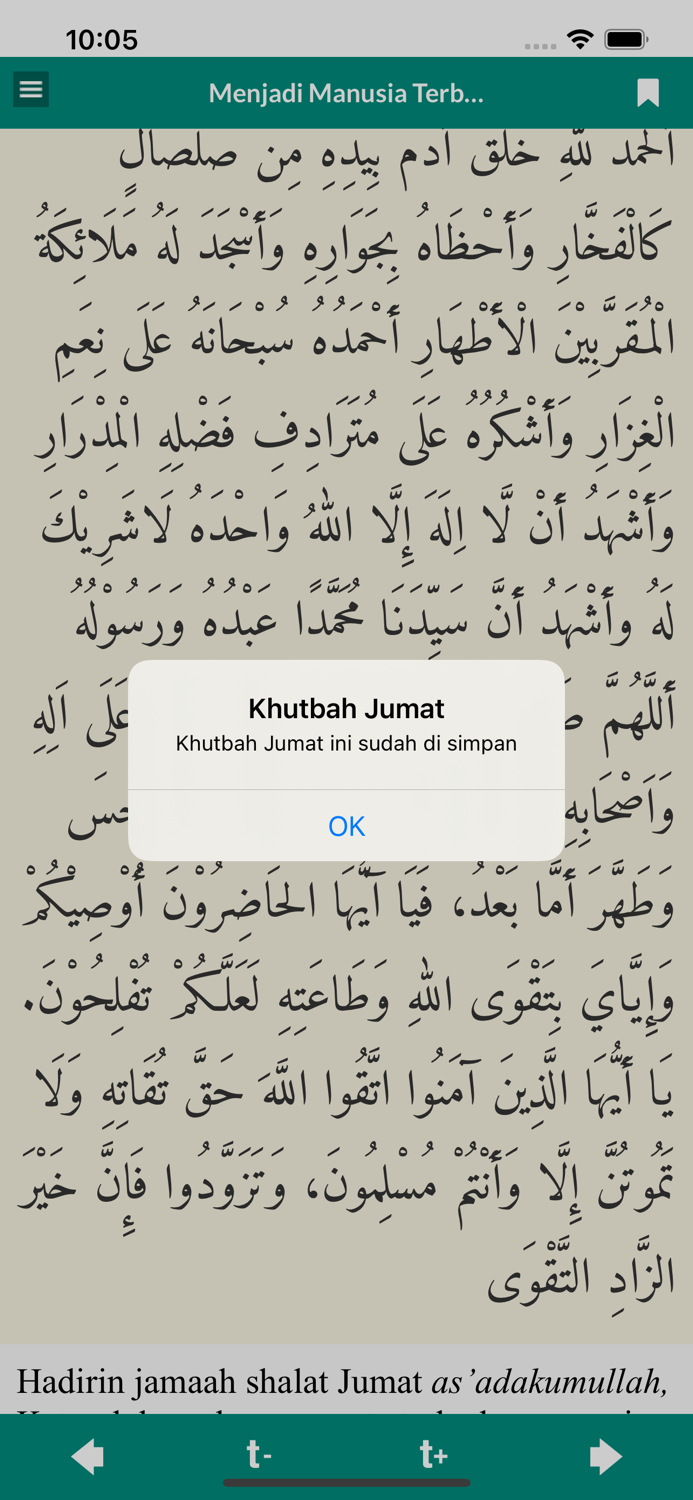 10:05
Menjadi Manusia Terb...
الحمد للهِ خلق آدم بِيَدِهِ مِن صلصالٍ
كَالْفَخَّارِ وَأَحْظَاهُ بِجَوَارِهِ وَأَسْجَدَ لَهُ مَلَائِكَةُ
الْمُقَرَّبِيْنَ الْأَطْهَارِ أَحْمَدُهُ سُبْحَانَهُ عَلَى نِعَمِ
الْغِزَارِ وَأَشْكُرُهُ عَلَى مُتَرَادِفِ فَضْلِهِ الْمِدْرَارِ
وَأَشْهَدُ أَنْ لَّا اِلَهَ إِلَّا اللهُ وَاحْدَه لَاشَرِيْكَ
لَهُ وأَشْهَدُ أَنَّ سَيِّدَنَا مُحَمَّدًا عَبْدُهُ وَرَسُوْلُهُ
أَللَّهُمَّ عَلَى اَلِهِ
وَاَصْحَابِهِ
وَطَهَّرَ أَمَّا بَعْدُ، فَيَا آيُّهَا الحَاضِرُوْنَ أُوْصِيْكُمْ
وَإِيَّايَ بِتَقْوَى اللهِ وَطَاعَتِهِ لَعَلَّكُمْ تُفْلِحُوْنَ.
يَا أَيُّهَا الَّذِينَ آمَنُوا اتَّقُوا اللَّهَ حَقَّ تُقَاتِهِ وَلَا
تَمُوتُنَّ إِلَّا وَأَنْتُمْ مُسْلِمُونَ، وَتَزَوَّدُوا فَإِنَّ خَيْرَ
الزَّادِ التَّقْوَى
Khutbah Jumat
Khutbah Jumat ini sudah di simpan
OK
Hadirin jamaah shalat Jumat as’adakumullah,
t- t+